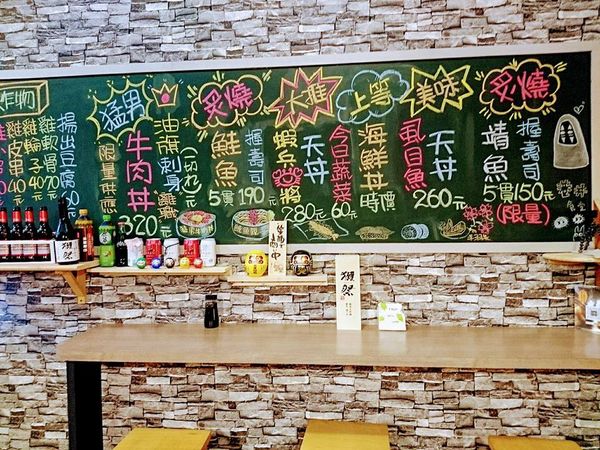 炙燒
握壽司
鯖魚
5貫150元
(限量)
美味
天丼
虱目魚
260元
上等
海鮮丼
時價
今日蔬菜
60元
大推
天丼
蝦兵
將
280元
炙燒
握壽司
鮭魚
5貫190元
油旗刺身
猛男
牛肉丼
限量供應
320元
炸物
揚出豆腐
60元
雞軟骨
70元
雞輪子
40元
雞皮串
40元
獺祭
中
獺祭